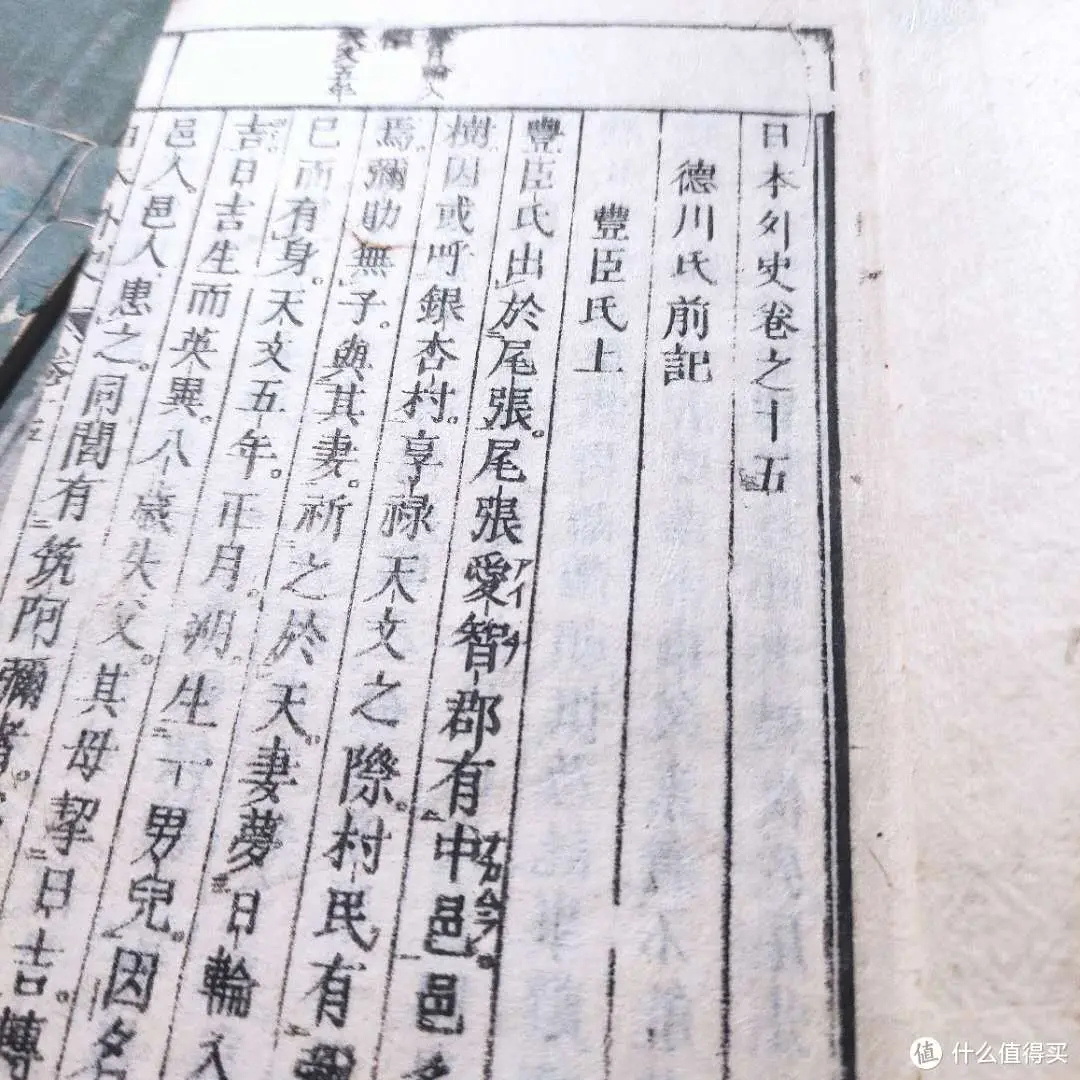 日本外史卷之十五
德川氏前記
豐臣氏上
豐臣氏出於尾張。尾張愛智郡有中邑邑
アイチ
樹因或呼銀杏村。享祿天文之際。村民有
焉彌助無子。與其妻。祈之於天。妻夢日輪入
已而有身。天文五年。正月。朔。生一男兒。因名
吉。日吉生而英異。八歲失父。其母挈日吉。轉
邑人邑人患之。同閭有筑阿彌者。
外史
值 什么值得买